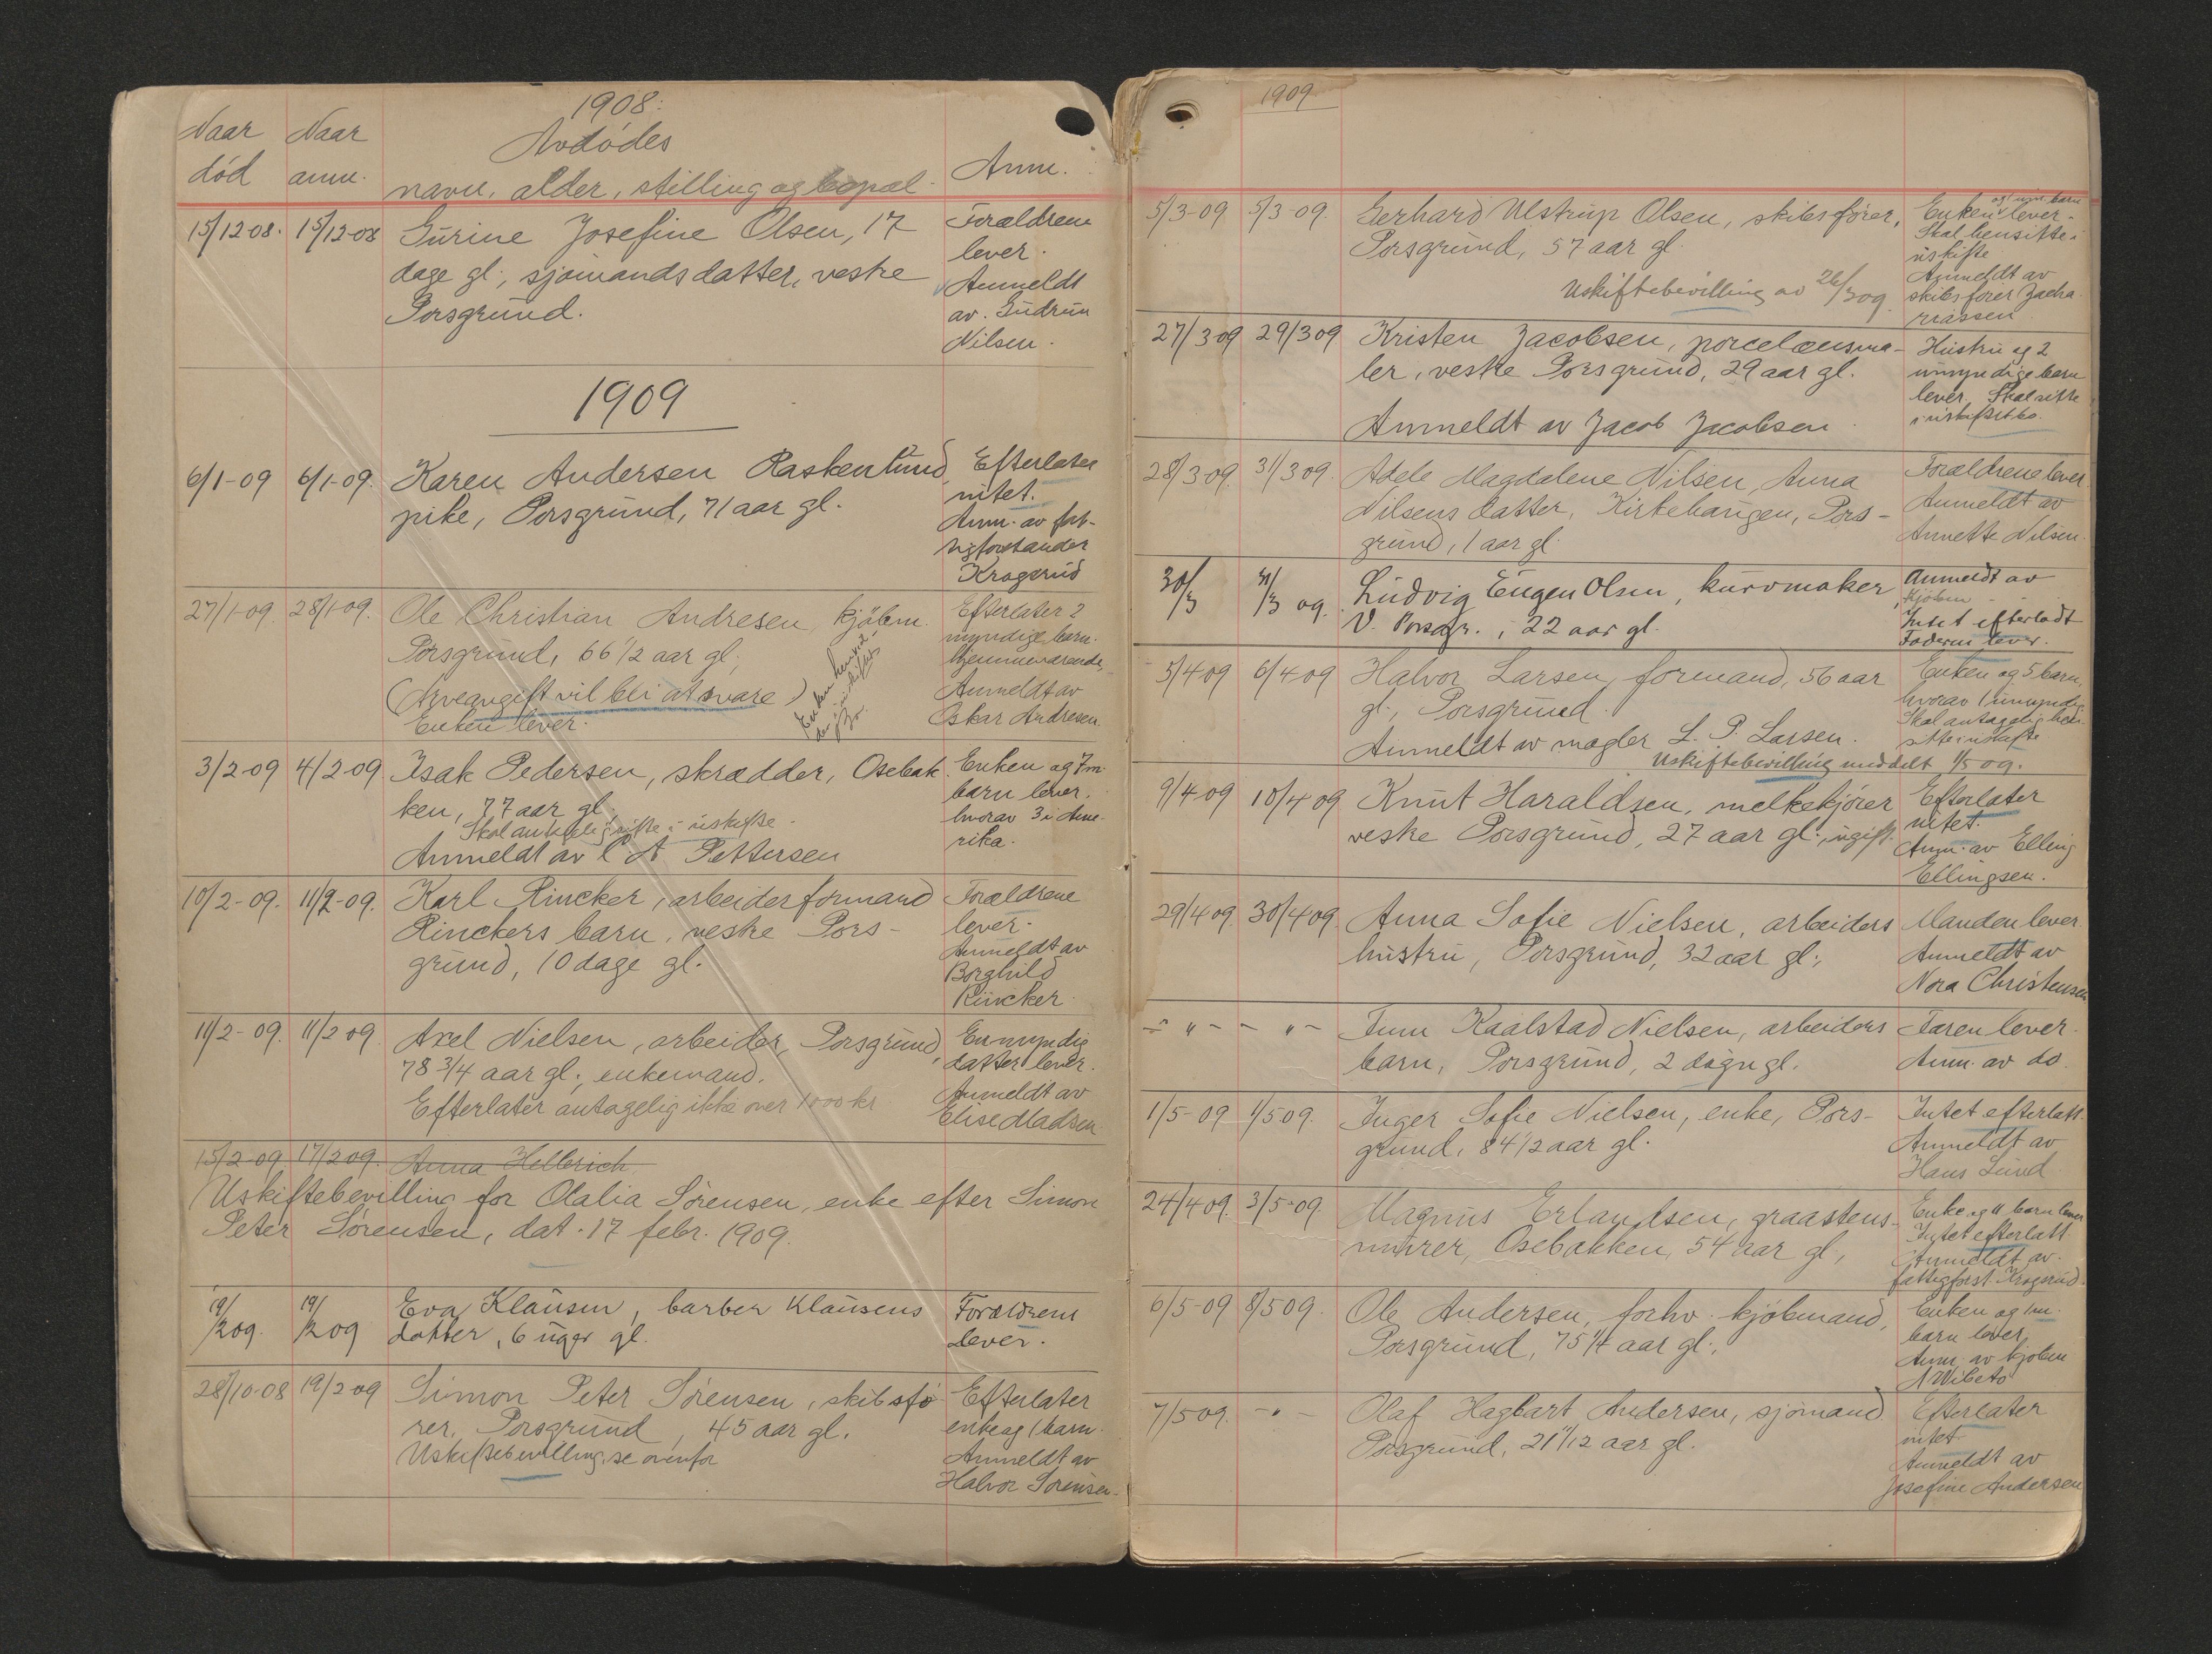 1908:
Naar Naar Avdödes
död anm. navn, alder, stilling og bopæl. Anm.
15/12-08. 15/12-08 Gurine Josefine Olsen, 17 Forældrene
dage gl., sjömandsdatter, vestre lever.
Porsgrund. Anmeldt
av. Gudrun
Nilsen.
1909
6/1-09 6/1-09. Karen Andersen Raskenlund, Efterlater
pike, Porsgrund, 71 aar gl. intet.
Anm. av fat-
tigforstander
Kragerud
27/1-09. 28/1-09. Ole Christian Andresen, kjöbm. Efterlater 2
Porsgrund, 66 1/2 aar gl., myndige barn.
hjemmeværende.
(Arveavgift vil bli at svare) Anmeldt av
Enken lever. Oskar Andresen.
3/2-09 4/2-09 Isak Pedersen, skrædder, Osebak- Enken og 7 m.
ken, 77 aar gl. barn lever.
Skal antagelig sitte i uskifte. hvorav 3 i Ame-
Anmeldt av C A Pettersen rika.
10/2-09. 11/2-09. Karl Rincker, arbeiderformand Forældrene
Rinckers barn, vestre Pors- lever.
grund, 10 dage gl. Anmeldt av
Borghild
Rincker.
11/2-09. 11/2 09. Axel Nielsen, arbeider, Porsgrund, En myndig
78 3/4 aar gl., enkemand. datter lever.
Efterlater antagelig ikke over 1000 kr Anmeldt av
Elise Madsen
15/2-09 17/2 09. Anna Hellerich
Uskiftebevilling for Olalia Sörensen, enke efter Simon
Peter Sörensen, dat. 17 febr. 1909.
19/2 09. 19/2 09 Eva Klausen, barber Klausens Forældrene
datter, 6 uger gl. lever.
28/10-08 19/2-09 Simon Peter Sörensen, skibsfö- Efterlater
rer, Porsgrund, 45 aar gl. enke og 1 barn.
Uskiftebevilling, se ovenfor Anmeldt av
Halvor Sörensen.
1909
5/3-09 5/3-09. Gerhard Ulstrup Olsen, skibsförer, Enken lever.
og um. barn
Porsgrund, 57 aar gl. Skal hensitte i
uskifte
Uskiftebevilling av 26/3 09. Anmeldt av
skibsförer Zacha-
riassen
27/3-09 29/3 09 Kristen Jacobsen, porcelænsma- Hustru og 2
ler, vestre Porsgrund, 29 aar gl. umyndige barn
lever. Skal sitte
Anmeldt av Jacob Jacobsen. i uskiftet bo.
28/3 09. 31/3 09. Adele Magdalene Nilsen, Anna Forældrene lever.
Nilsens datter, Kirkehaugen, Pors- Anmeldt av
grund, 1 aar gl. Annette Nilsen.
30/3 31/3 09. Ludvig Eugen Olsen, kurvmaker, Anmeldt av
V. Porsgr., 22 aar gl. Intet efterladt
Faderen lever.
5/4 09 6/4 09 Halvor Larsen, formand, 56 aar Enken og 5 barn,
gl., Porsgrund. hvorav 1 umyndig.
Skal antagelig hen-
Anmeldt av mægler L. P. Larsen. sitte i uskifte
Uskiftebevilling meddelt 1/5 09.
9/4-09 10/4 09 Knut Haraldsen, melkekjörer Efterlater
vestre Porsgrund, 27 aar gl., ugift intet.
Anm. av Elling
Ellingsen.
29/4 09. 30/4 09. Anna Sofie Nielsen, arbeiders Manden lever.
hustru, Porsgrund, 32 aar gl., Anmeldt av
Nora Christensen
- " - - " - Kaalstad Nielsen, arbeiders Faren lever.
barn, Porsgrund, 2 dögn gl. Anm. av do.
1/5-09 1/5 09. Inger Sofie Nielsen, enke, Pors- Intet efterlatt.
grund, 84 1/2 aar gl. Anmeldt av
Hans Lund.
24/4 09. 3/5-09. Magnus Erlandsen, graastens- Enke og 4 barn lever
murer, Osebakken, 54 aar gl., Intet efterlatt
Anmeldt av
fattigforst. Kragerud.
6/5-09 8/5 09. Ole Andersen, forhv. kjöbmand, Enken og 1 m.
Porsgrund, 75 1/4 aar gl., barn lever,
Anm. av kjöbm
A Wibeto
7/5 09. - " - Olaf Hagbart Andersen, sjömand Efterlater
Porsgrund, 21 1/12 aar gl. intet
Anmeldt av
Josefine Andersen